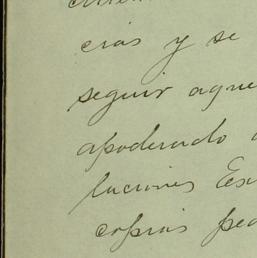 cias y se
seguir aque
apoderado
luciones Es
copias ped